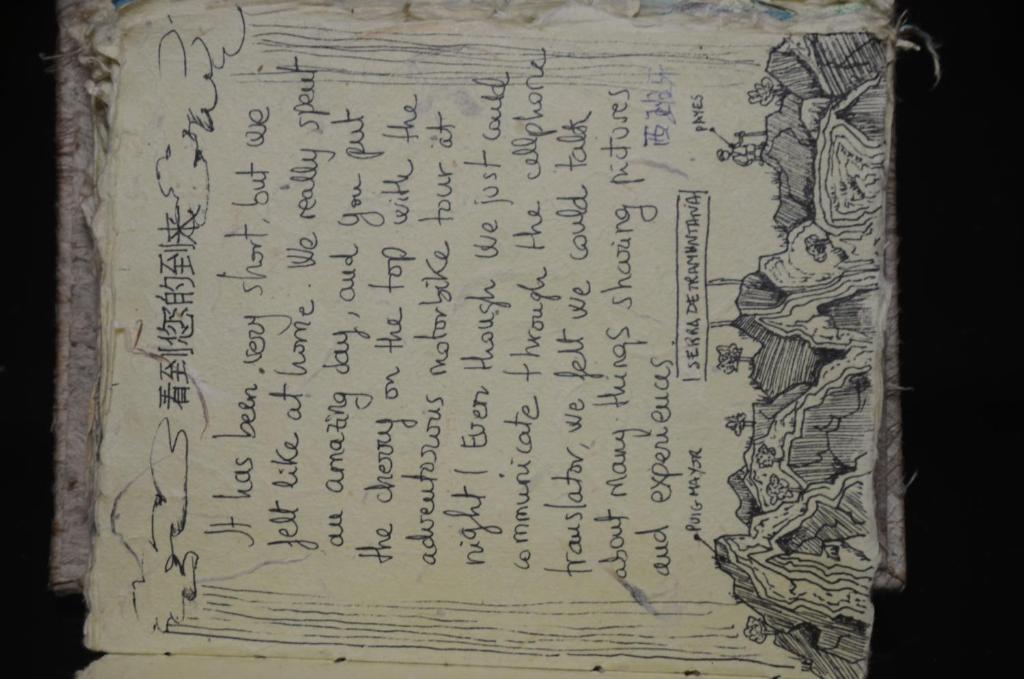 看到您的到来
It has been very short, but we
felt like at home. We really spent
an amazing day, and you put
the cherry on the top with the
adventurous motorbike tour at
night! Even though we just could
communicate through the cellphone
translator, we felt we could talk
about many things sharing pictures
and experiences.
西班牙
PUIG MAYOR
SERRA DE TRAMUNTANA
PAYES